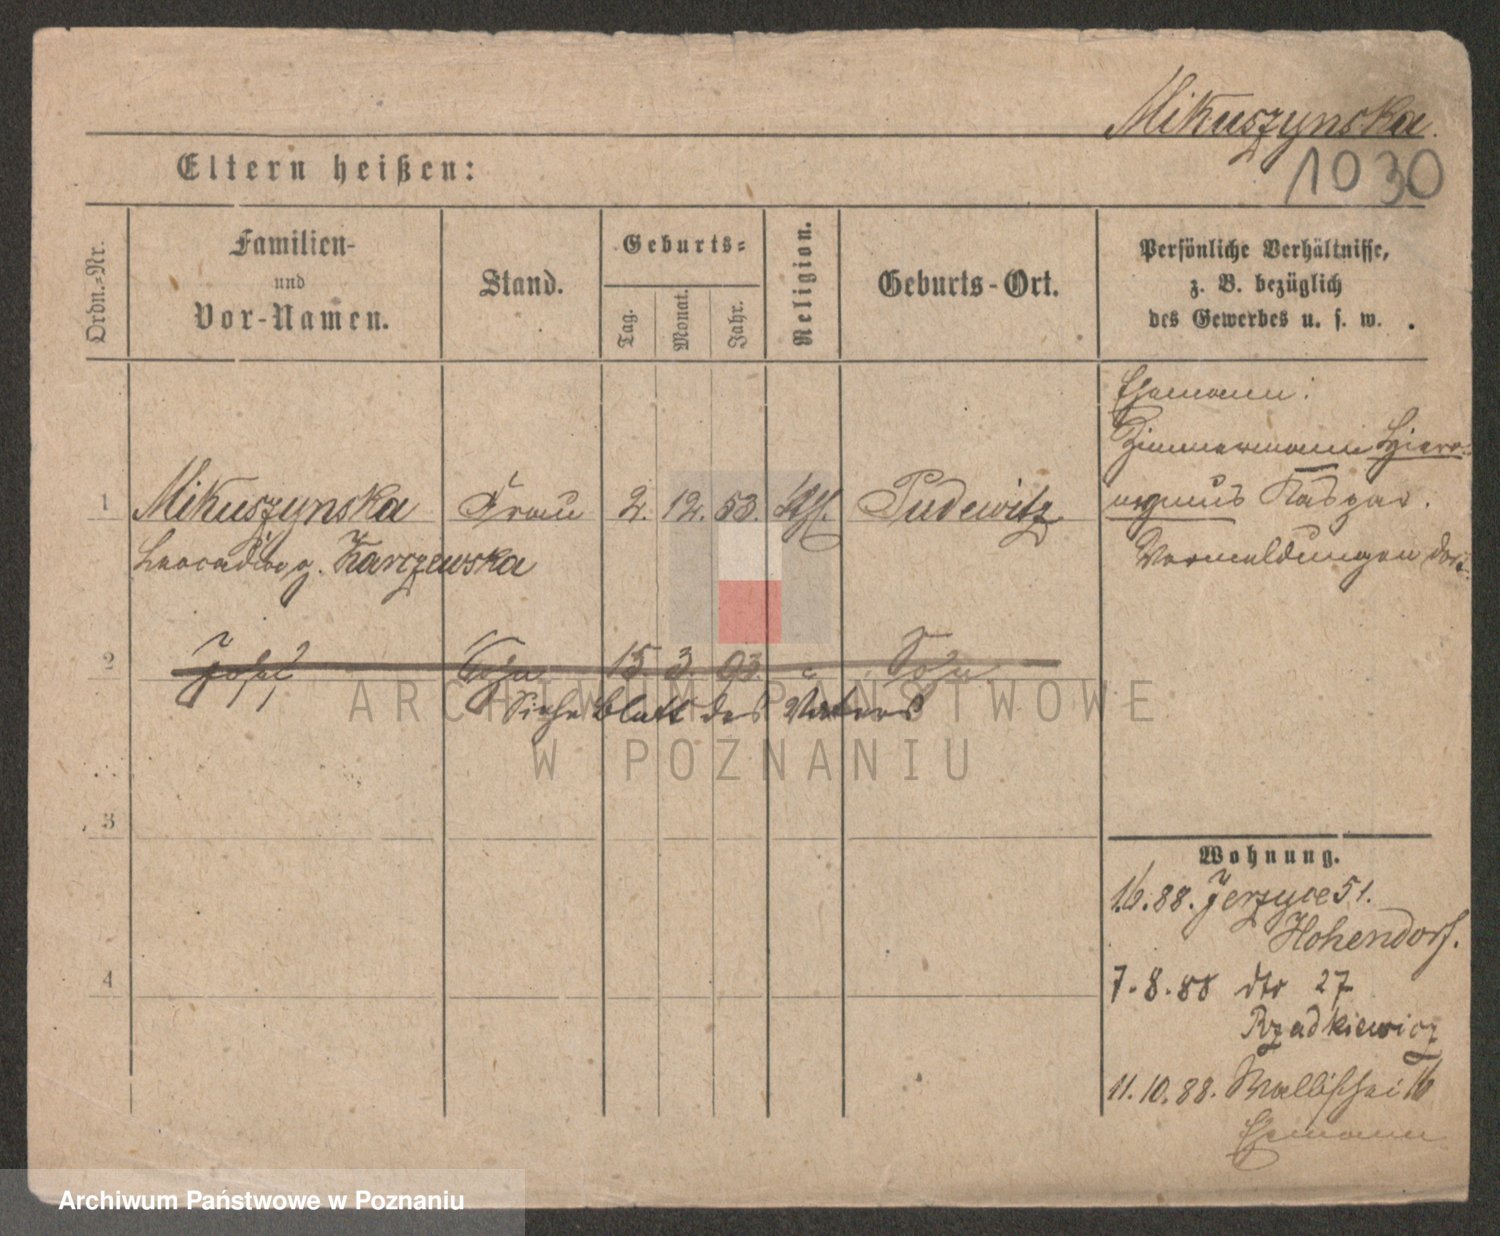 Mikuszynska.
1030
Eltern heißen:
Ordn.-Nr.
Familien-
und
Vor-Namen.
Stand.
Geburts-
Tag.
Monat.
Jahr.
Religion.
Geburts-Ort.
Persönliche Verhältnisse,
z. B. bezüglich
des Gewerbes u. s. w.
Ehemann:
Zimmermann Hiero-
nymus Kaspar.
Vermeldungen dort.
1 Mikuszynska Frau 2. 12. 53. kth. Pudewitz
Leocadia g. Karczewska
2 Josef Sohn 15 3. 93
Siehe Blatt des Vaters
3
4
Wohnung.
1.6.88. Jerzyce 51.
Hohendorf.
7.8.88 dto 27
Rzadkiewicz
11.10.88. Wallischei 16
Ehemann
ARCHIWUM PAŃSTWOWE
W POZNANIU
Archiwum Państwowe w Poznaniu